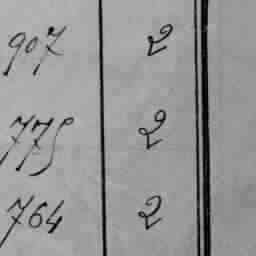 907 2
775 2
764 2